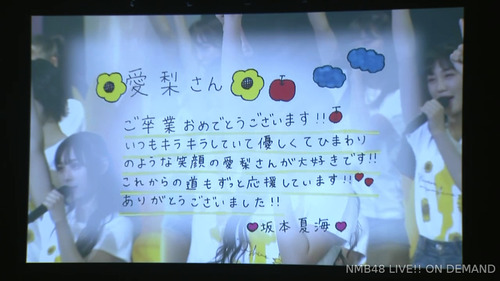 愛梨さん
ご卒業おめでとうございます!!
いつもキラキラしていて優しくてひまわり
のような笑顔の愛梨さんが大好きです!!
これからの道もずっと応援しています!!
ありがとうございました!!
坂本夏海
NMB48 LIVE!! ON DEMAND